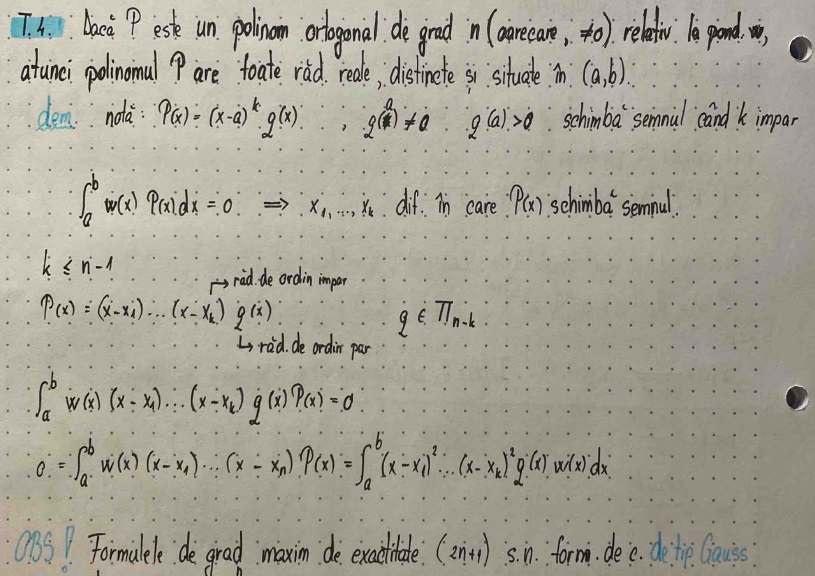 T.4. Dacă P este un polinom ortogonal de grad n (oarecare, ≠0) relativ la pond. w,
atunci polinomul P are toate răd. reale, distincte și situate în (a,b).
dem. notă: P(x) = (x-a)^k g(x) , g(a) ≠ 0 g(a)>0 schimbă semnul când k impar
∫_a^b w(x) P(x)dx = 0 ⟹ x₁,...,x_k dif. în care P(x) schimbă semnul.
k ≤ n-1
↱ răd. de ordin impar
P(x) = (x-x₁)...(x-x_k) g(x) g ∈ Π_{n-k}
↳ răd. de ordin par
∫_a^b w(x) (x-x₁)...(x-x_k) g(x) P(x) = 0
0 = ∫_a^b w(x) (x-x₁)...(x-x_n) P(x) = ∫_a^b (x-x₁)²...(x-x_k)² g(x) w(x) dx
OBS! Formulele de grad maxim de exactitate (2n+1) s.n. form. de c. de tip Gauss